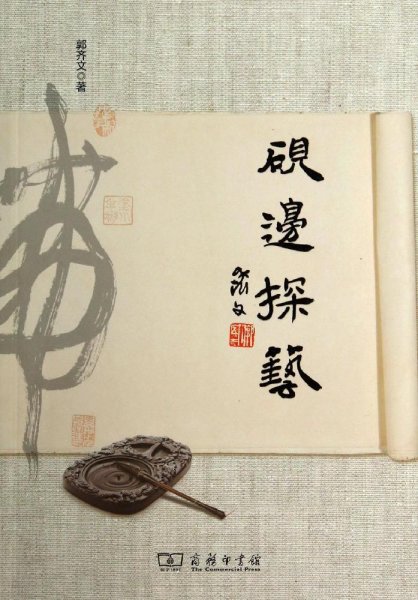 郭齐文◎著
砚邊探藝
齐文
商務印書館
The Commercial Press